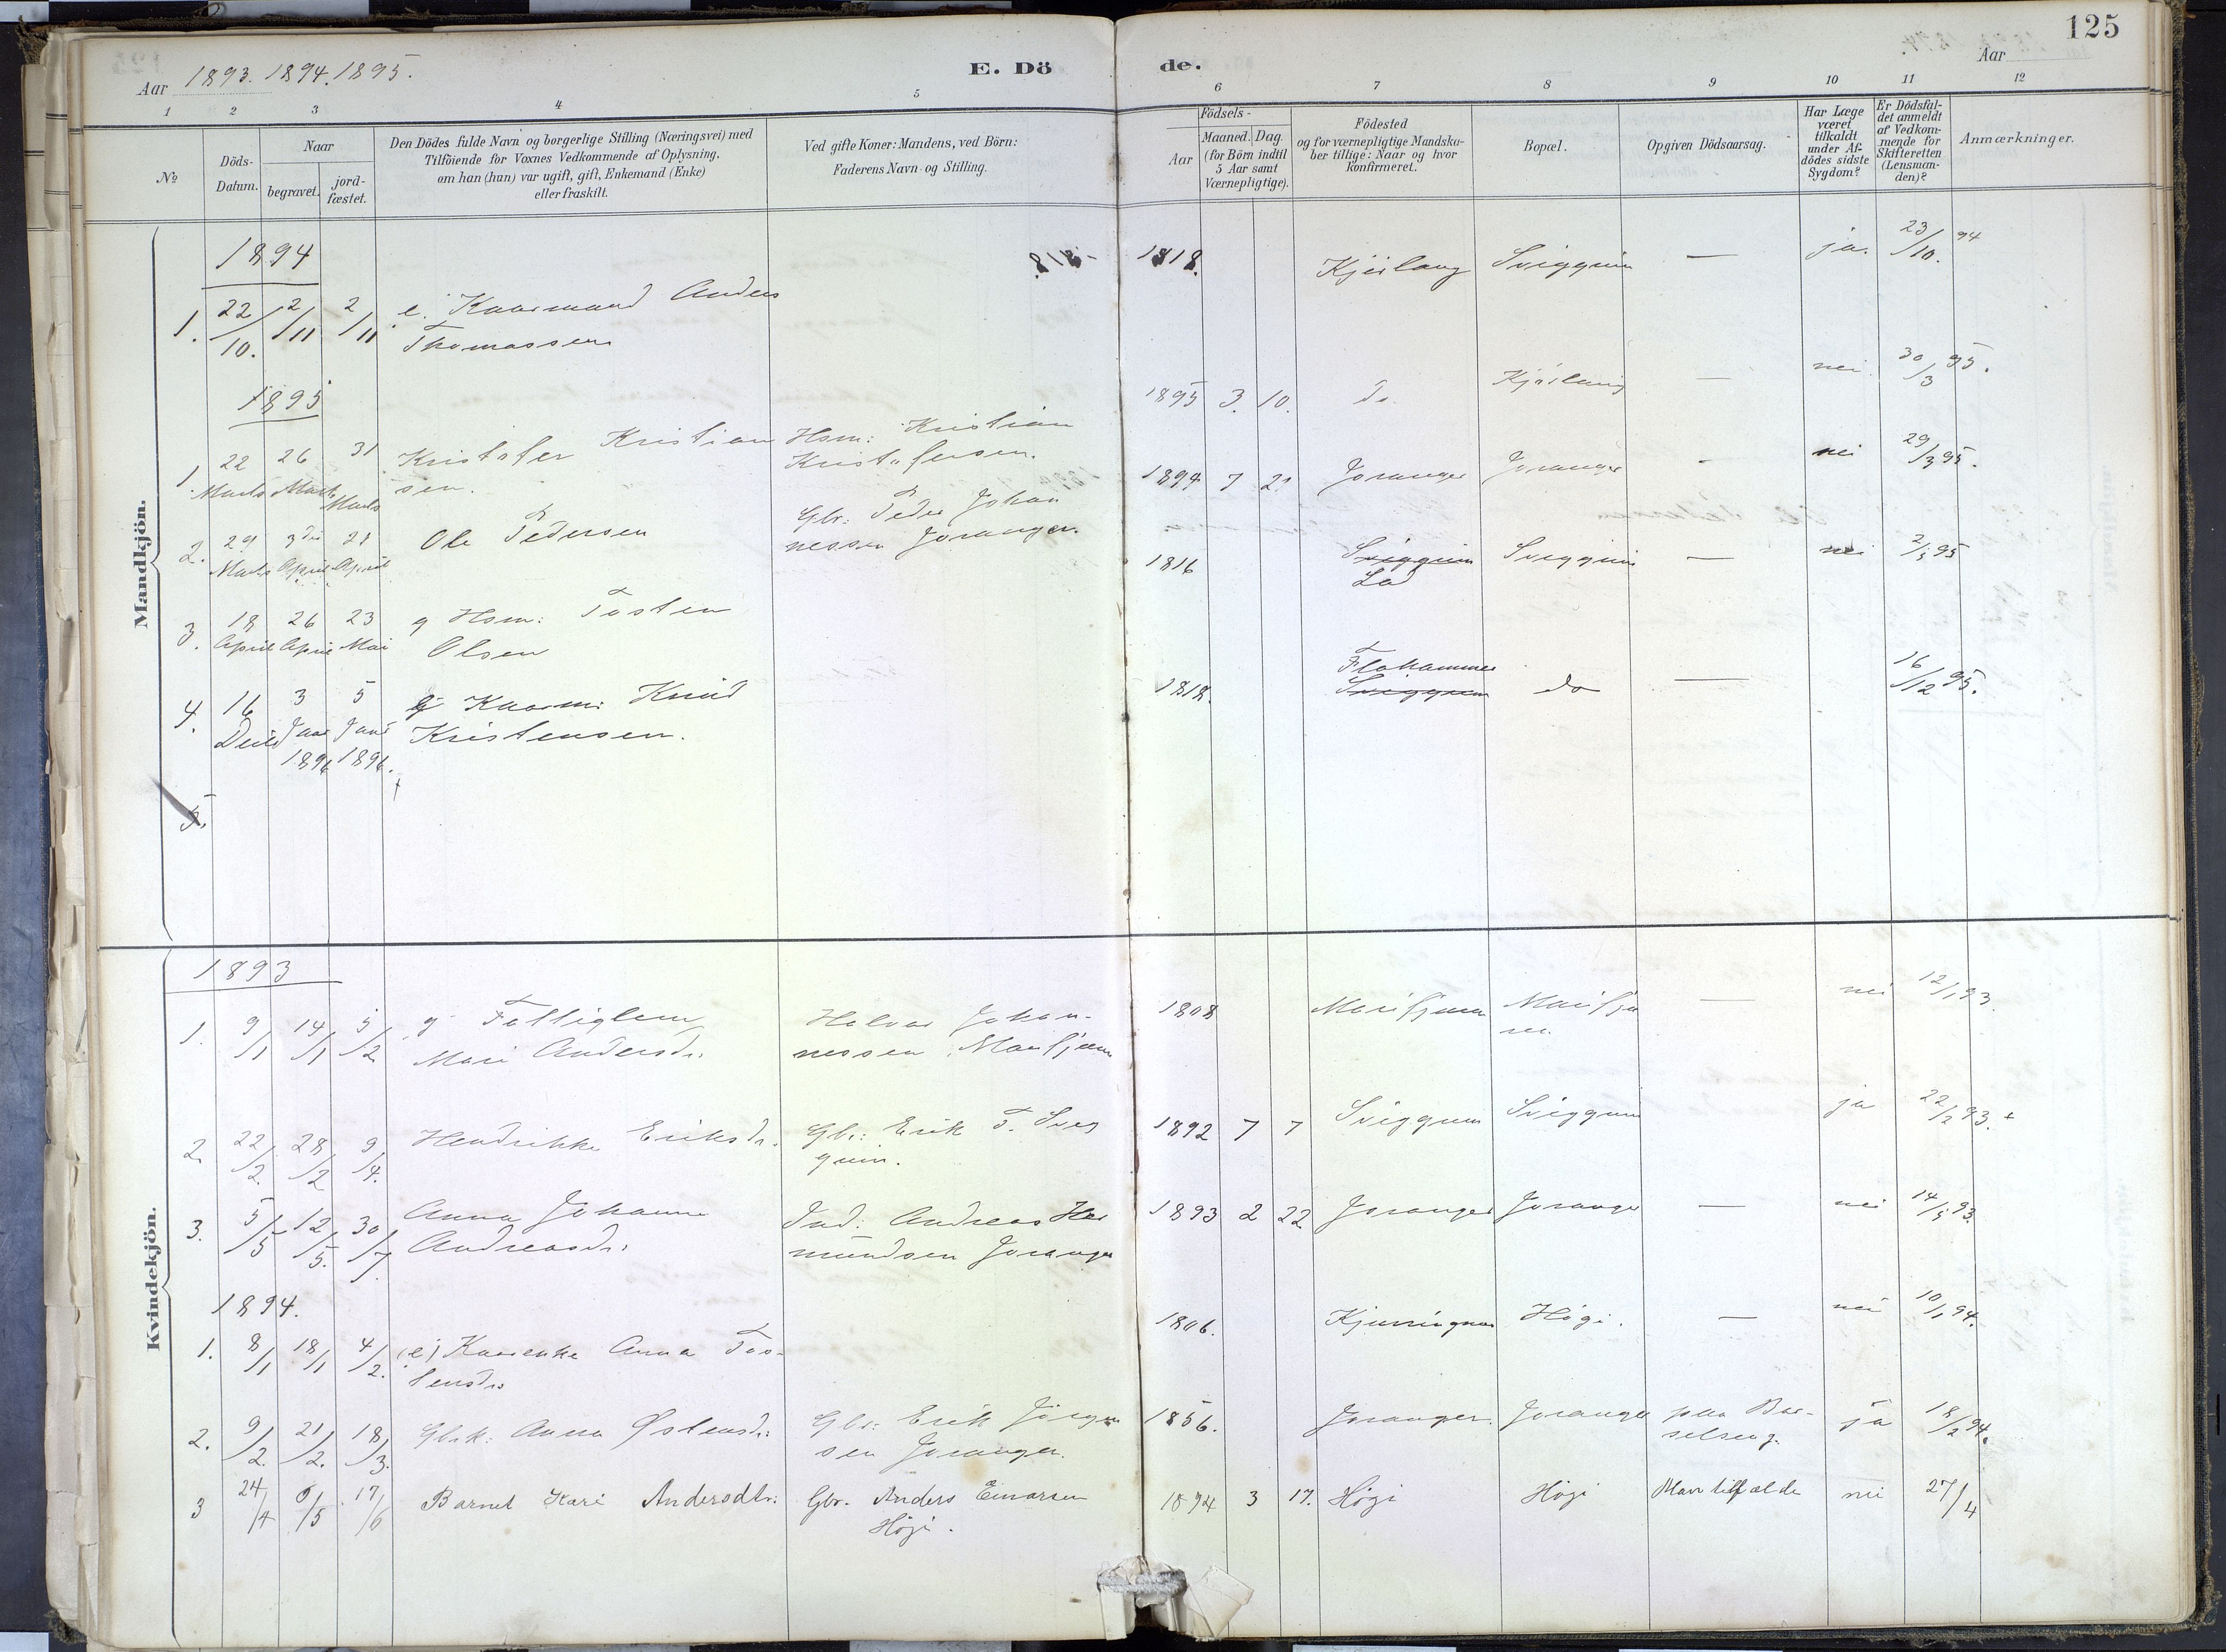 125
Aar 1893. 1894. 1895.
E. Dö de.
Aar
1 2 3 4 5 6 7 8 9 10 11 12
No
Döds-
Datum.
Naar
begravet.
jord-
fæstet.
Den Dödes fulde Navn og borgerlige Stilling (Næringsvei) med
Tilföiende for Voxnes Vedkommende af Oplysning,
om han (hun) var ugift, gift, Enkemand (Enke)
eller fraskilt.
Ved gifte Koner: Mandens, ved Börn:
Faderens Navn og Stilling.
Födsels-
Aar
Maaned. Dag.
(for Börn indtil
5 Aar samt
Værnepligtige).
Födested
og for værnepligtige Mandska-
ber tillige: Naar og hvor
konfirmeret.
Bopæl.
Opgiven Dödsaarsag.
Har Læge
været
tilkaldt
under Af-
dödes sidste
Sygdom?
Er Dödsfal-
det anmeldt
af Vedkom-
mende for
Skifteretten
(Lensman-
den)?
Anmærkninger.
Mandkjön.
1894
1. 22/10. 2/11 2/11 e. Kaarmand Anders
Thomassen
1818. Kjörlaug Sviggum — ja. 23/10. 94
1895
1. 22 Marts 26 Marts 31 Marts Kristofer Kristian
sen.
Hsm: Kristian
Kristofersen.
1895 3. 10. do Kjörlaug — nei 30/3 95.
2. 29 Marts 3die April 21 April Ole Pedersen
Gbr: Peder Johan
nessen Joranger.
1894 7 21 Joranger Joranger — nei 29/3 95.
3. 18 April 26 April 23 Mai g Hsm: Tosten
Olsen
1816 Sviggum
Lad
Sviggum — nei 2/5 95
4. 16 Decbr 3 Januar 1896 5 Januar 1896. g Kaarm: Knud
Kristensen.
1818. Flahammer
Sviggum
do — 16/12 95.
5.
Kvindekjön.
1893
1. 9/1 14/1 5/2 g Fattiglem
Mari Andersdr.
Halvor Johan-
nessen, Marifjæren
1808 Marifjæren Marifjæ
ren. — nei 12/1 93.
2. 22/2. 28/2 9/4. Hendrikke Eriksdr.
Gbr: Erik T. Svig
gum.
1892 7 7 Sviggum Sviggum — ja 22/2 93. +
3. 5/5 12/5. 30/7. Anna Johanna
Andreasdr.
Ind: Andreas Her
mundsen Joranger
1893 2 22 Joranger Joranger — nei 14/5 93.
1894.
1. 8/1 18/1 4/2. (e) Kaarenke Anna To-
stensdr.
1806. Högi. — nei 10/1 94.
2. 9/2. 21/2. 18/3. Gbrk: Anna Østensdr.
Gbr: Erik Jörgen
sen Joranger.
1856. Joranger. Joranger paa Bar-
selseng. ja 18/2 94.
3 24/4 6/5 17/6 Barnet Kari Andersdtr.
Gbr. Anders Einarsen
Högi.
1894 3 17. Högi Högi nei 27/4